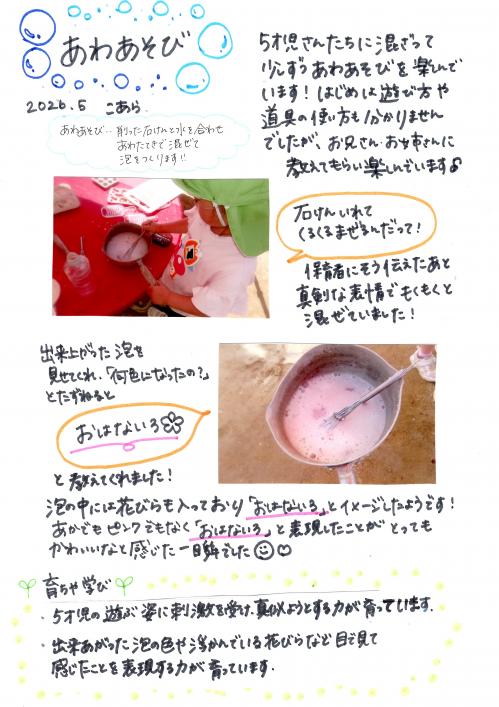 あわあそび
2026.5 こあら
あわあそび…削った石けんと水を合わせ
あわたてきで混ぜて
泡をつくります!!
5才児さんたちに混ざって
少しずつあわあそびを楽しんで
います!はじめは遊び方や
道具の使い方も分かりません
でしたが、お兄さん・お姉さんに
教えてもらい楽しんでいます♪
石けんいれて
くるくるまぜるんだって!
保育者にそう伝えたあと
真剣な表情でもくもくと
混ぜていました!
出来上がった泡を
見せてくれ、「何色になったの?」
とたずねると
おはないろ
と教えてくれました!
泡の中には花びらも入っており「おはないろ」とイメージしたようです!
あかでもピンクでもなく「おはないろ」と表現したことがとっても
かわいいなと感じた一瞬でした
育ちや学び
・5才児の遊ぶ姿に刺激を受け、真似ようとする力が育っています.
・出来あがった泡の色や浮かんでいる花びらなど目で見て
感じたことを表現する力が育っています.